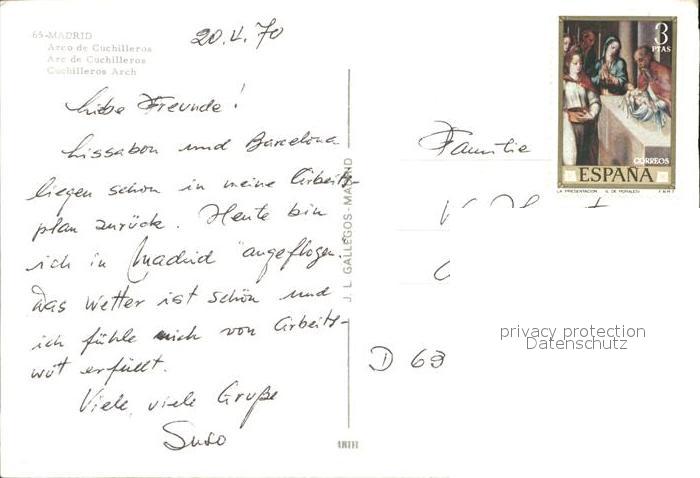 65-MADRID
Arco de Cuchilleros
Arc de Cuchilleros
Cuchilleros Arch
20.V.70
Liebe Freunde!
Lissabon und Barcelona
liegen schon in meine Arbeits-
plan zurück. Heute bin
ich in Madrid "angeflogen".
Das Wetter ist schön und
ich fühle mich von Arbeits-
wut erfüllt.
Viele, viele Grüße
Suso
J. L. GALLEGOS - MADRID
3
PTAS
CORREOS
ESPAÑA
LA PRESENTACION
F.N.M.T.
Familie
D 69
privacy protection
Datenschutz